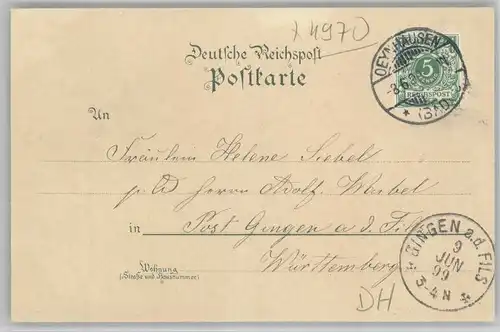 x 4970
Deutsche Reichspost
Postkarte
OEYNHAUSEN
(BAD)
5
REICHSPOST
An
Fräulein Helene Siebel
p. Ad Herrn Adolf
in Post Gingen a d. Fils
Württemberg
Wohnung
(Straße und Hausnummer)
GINGEN a.d. FILS
9
JUN
99
3-4N
DH